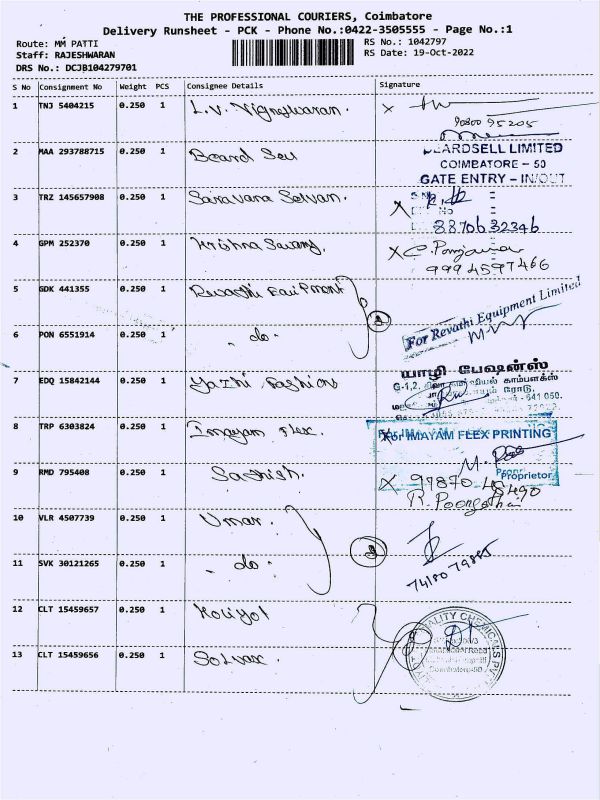 THE PROFESSIONAL COURIERS, Coimbatore
Delivery Runsheet - PCK - Phone No.:0422-3505555 - Page No.:1
Route: MM PATTI
RS No.: 1042797
Staff: RAJESHWARAN
RS Date: 19-Oct-2022
DRS No.: DCJB104279701
S No Consignment No Weight PCS Consignee Details Signature
1 TNJ 5404215 0.250 1 L.V. Vigneshwaran. X
90800 95205
2 MAA 293788715 0.250 1 Beard Sell
BEARDSELL LIMITED
COIMBATORE - 50
GATE ENTRY - IN/OUT
3 TRZ 145657908 0.250 1 Saravana Selvan. X
No
8870632346
4 GPM 252370 0.250 1 Krishna Samy. X
9994597466
5 GDK 441355 0.250 1 Revathi Equipment
For Revathi Equipment Limited
6 PON 6551914 0.250 1 - do -
யாழி பேஷன்ஸ்
7 EDQ 15842144 0.250 1 Yazhi Fashion
G-1,2, காம்பளக்ஸ்
ரோடு,
641 050.
8 TRP 6303824 0.250 1 Imayam Flex.
For IMAYAM FLEX PRINTING
Proprietor
9 RMD 795408 0.250 1 Sathish. X
R. Poongothai
10 VLR 4507739 0.250 1 Umar.
11 SVK 30121265 0.250 1 - do -
74180 79885
12 CLT 15459657 0.250 1
13 CLT 15459656 0.250 1 Solvax.